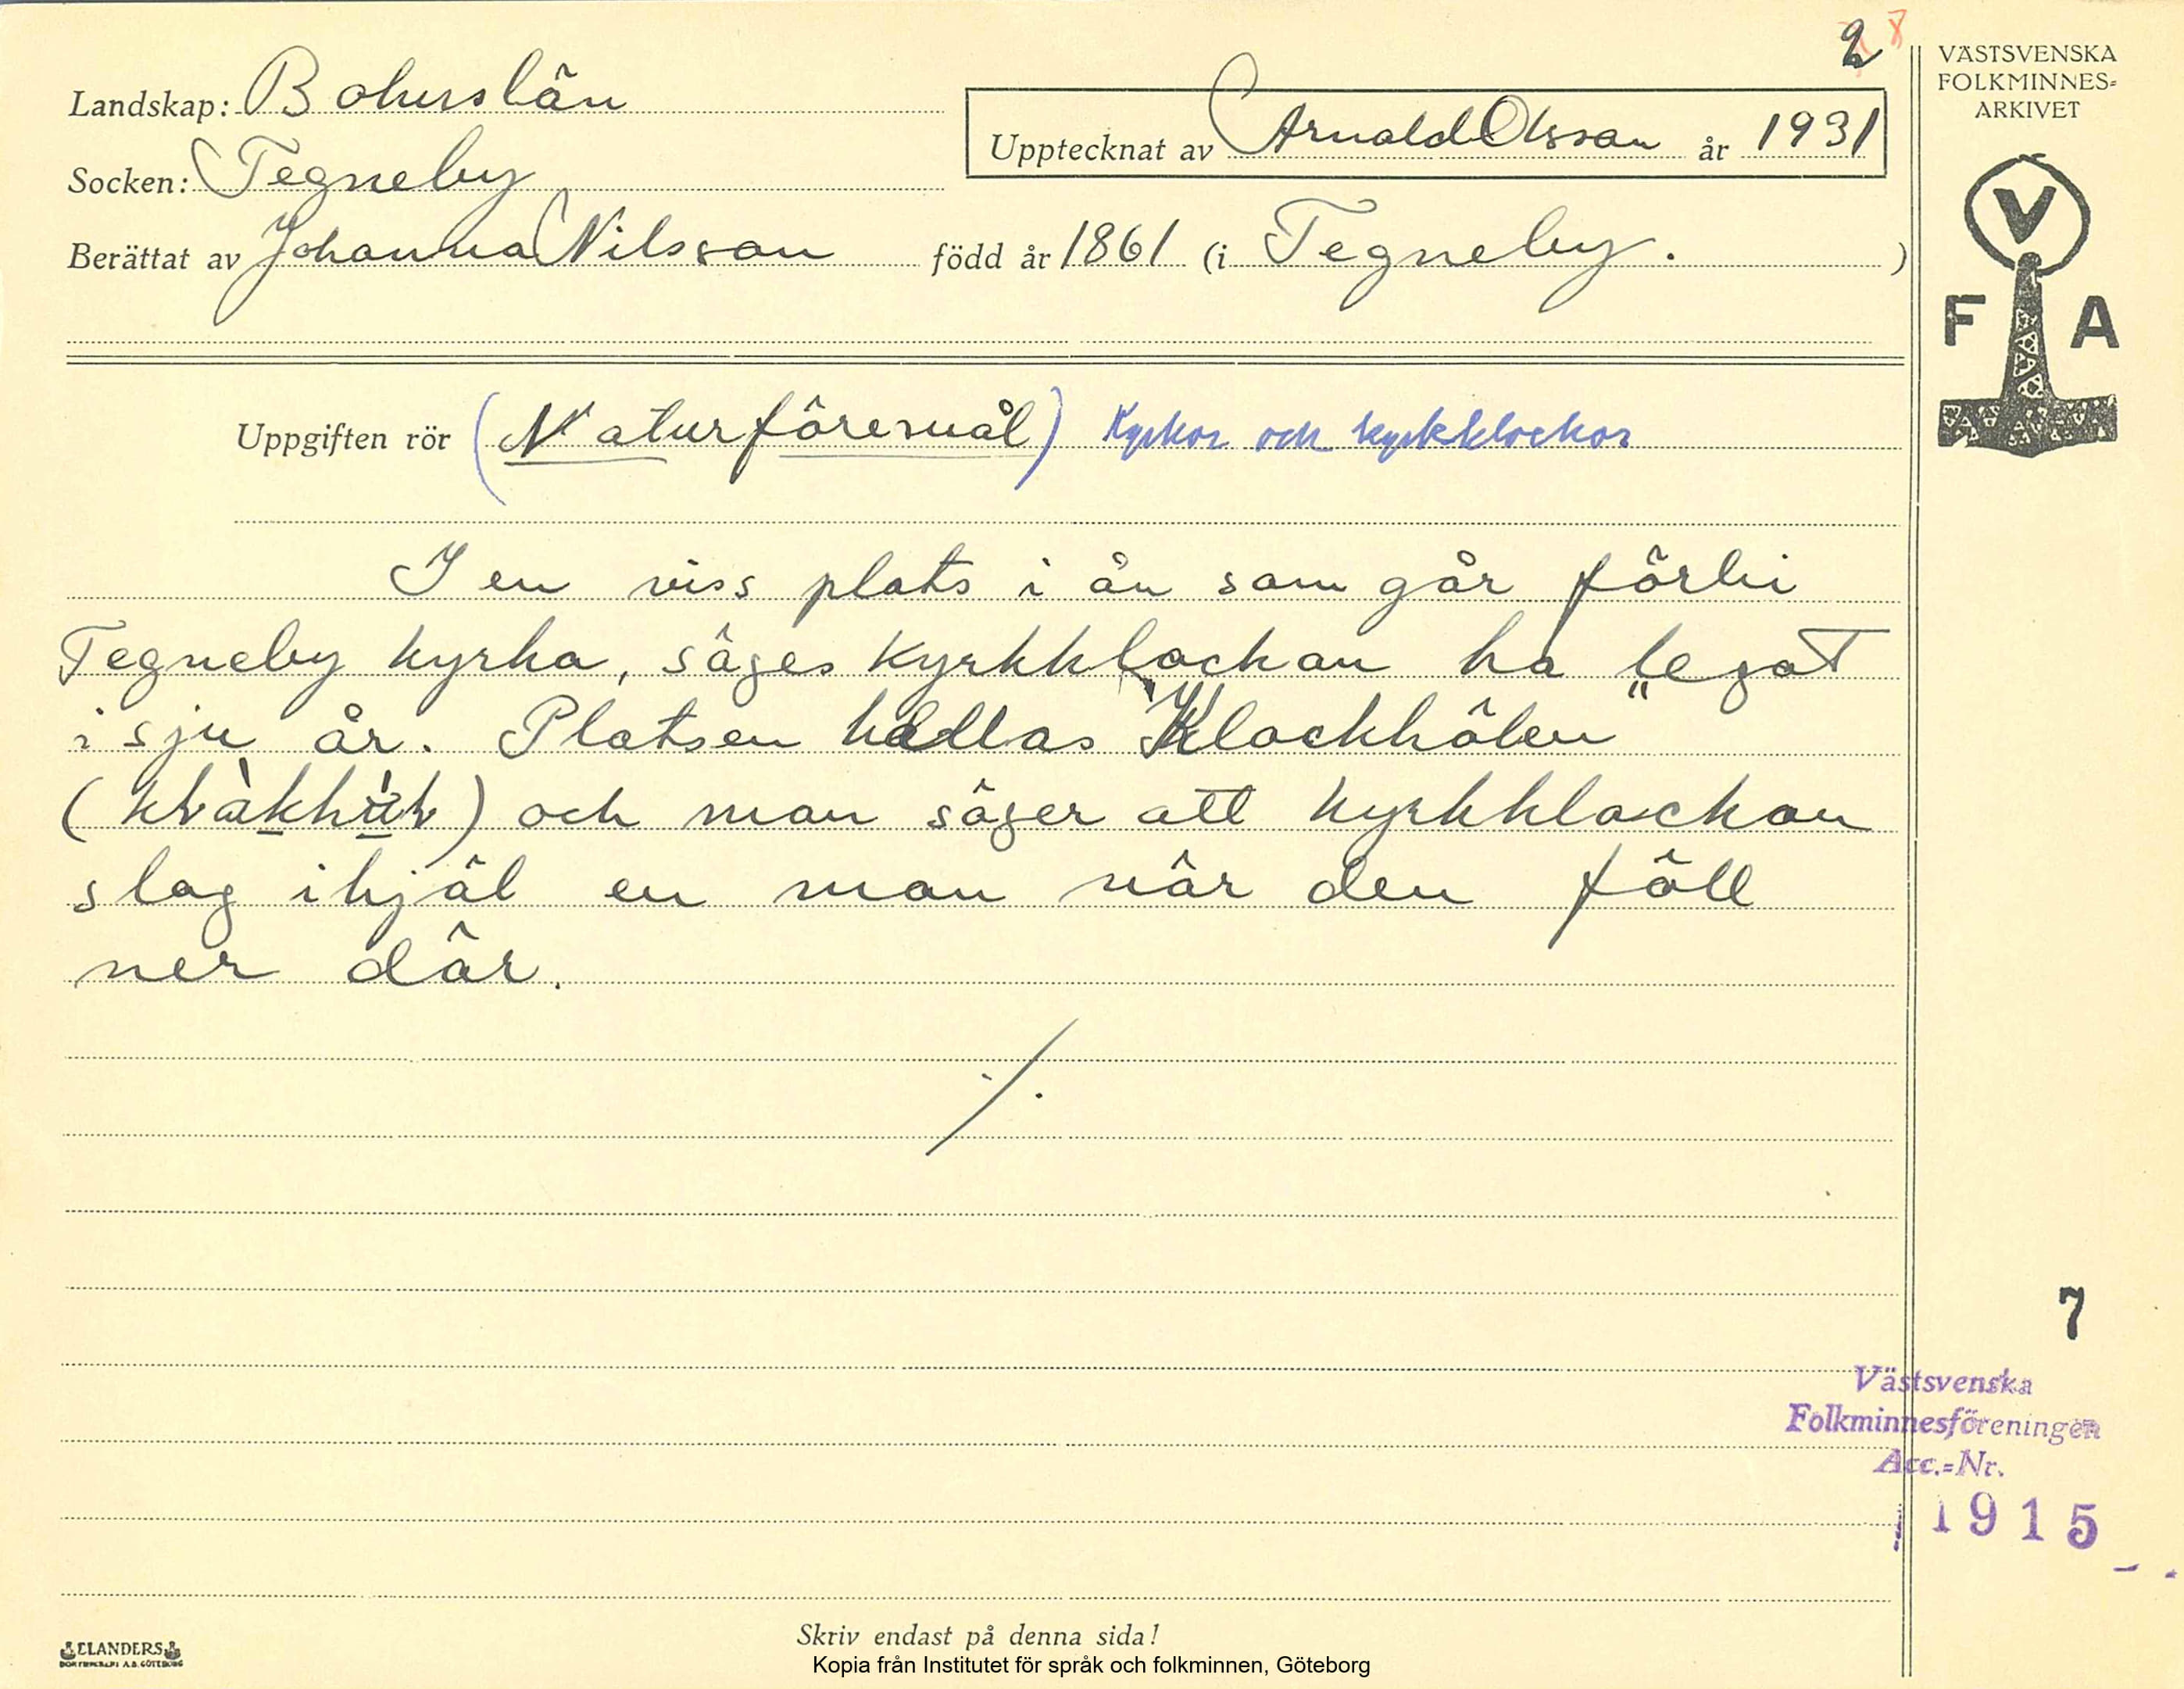 2 8
VÄSTSVENSKA
FOLKMINNES=
ARKIVET
Landskap: Bohuslän
Upptecknat av Arnold Olsson år 1931
Socken: Tegneby
Berättat av Johanna Nilsson född år 1861 (i Tegneby. )
V
F A
Uppgiften rör (Naturföremål) Kyrkor och kyrkklockor
I en viss plats i ån som går förbi
Tegneby kyrka, säges kyrkklockan ha legat
i sju år. Platsen kallas "Klockhölen"
( ) och man säger att kyrkklockan
slog ihjäl en man när den föll
ner där.
./.
7
Västsvenska
Folkminnesföreningen
Acc.=Nr.
1915
Skriv endast på denna sida!
ELANDERS
BOKTRYCKERI A.B. GÖTEBORG
Kopia från Institutet för språk och folkminnen, Göteborg